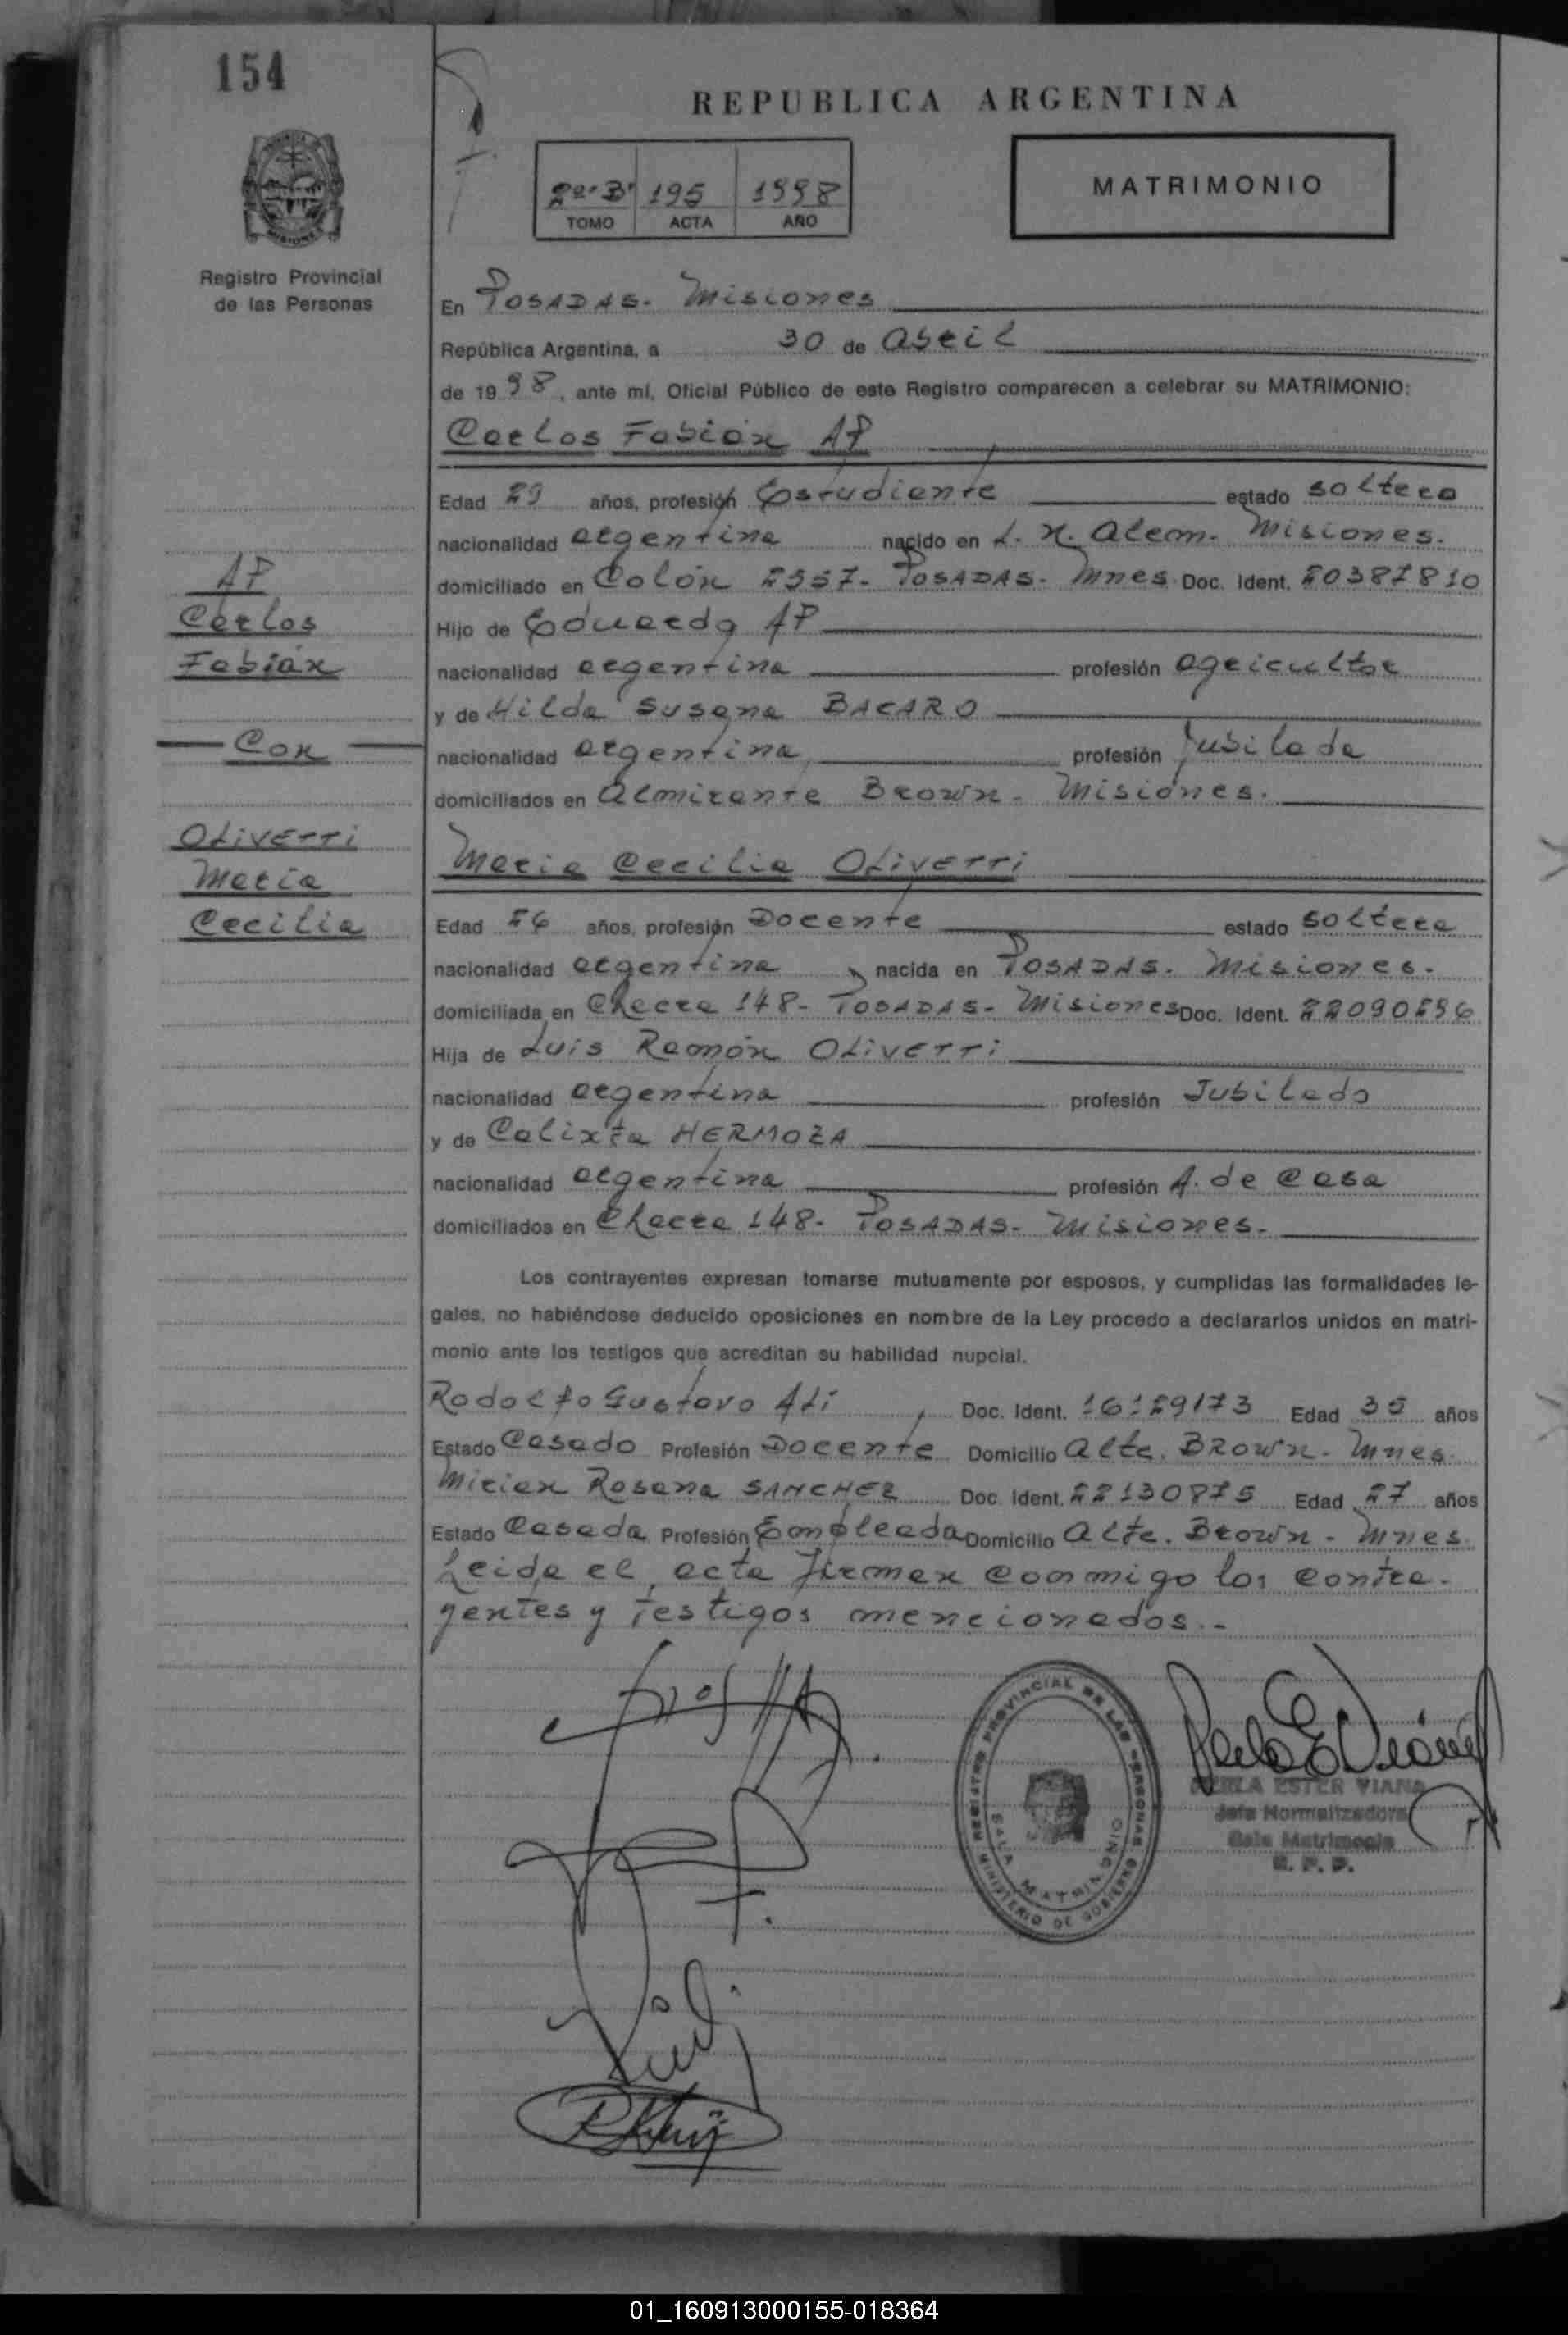 154
REPUBLICA ARGENTINA
2º "B" 195 1998
TOMO ACTA AÑO
MATRIMONIO
MISIONES
Registro Provincial
de las Personas
En POSADAS. Misiones
República Argentina, a 30 de abril
de 1998, ante mí, Oficial Público de este Registro comparecen a celebrar su MATRIMONIO:
Carlos Fabián AP
Edad 29 años, profesión Estudiante estado soltero
nacionalidad argentina nacido en L. N. Alem. Misiones.
AP
domiciliado en Colón 2557- POSADAS- Mnes Doc. Ident. 20387810
Carlos
Hijo de Eduardo AP
Fabián
nacionalidad argentina profesión agricultor
y de Hilda Susana BACARO
Con
nacionalidad argentina, profesión Jubilada
domiciliados en Almirante Brown. Misiones.
OLIVETTI
María
María Cecilia OLIVETTI
Cecilia
Edad 26 años, profesión Docente estado soltera
nacionalidad argentina nacida en POSADAS. Misiones.
domiciliada en Chacra 148- POSADAS- Misiones Doc. Ident. 22090296
Hija de Luis Ramón OLIVETTI
nacionalidad argentina profesión Jubilado
y de Calixta HERMOZA
nacionalidad argentina profesión A. de Casa
domiciliados en Chacra 148- POSADAS- Misiones.
Los contrayentes expresan tomarse mutuamente por esposos, y cumplidas las formalidades le-
gales, no habiéndose deducido oposiciones en nombre de la Ley procedo a declararlos unidos en matri-
monio ante los testigos que acreditan su habilidad nupcial.
Rodolfo Gustavo Ali, Doc. Ident. 16129173 Edad 35 años
Estado Casado Profesión Docente Domicilio Alte. Brown- Mnes.
Mirian Rosana SANCHEZ Doc. Ident. 22130875 Edad 27 años
Estado Casada Profesión Empleada Domicilio Alte. Brown- Mnes.
Leida el acta firman conmigo los contra-
yentes y testigos mencionados.-
REGISTRO PROVINCIAL DE LAS PERSONAS
MINISTERIO DE GOBIERNO
SALA MATRIMONIO
PERLA ESTER VIANA
Jefa Normalizadora
Sala Matrimonio
R. P. P.
01_160913000155-018364